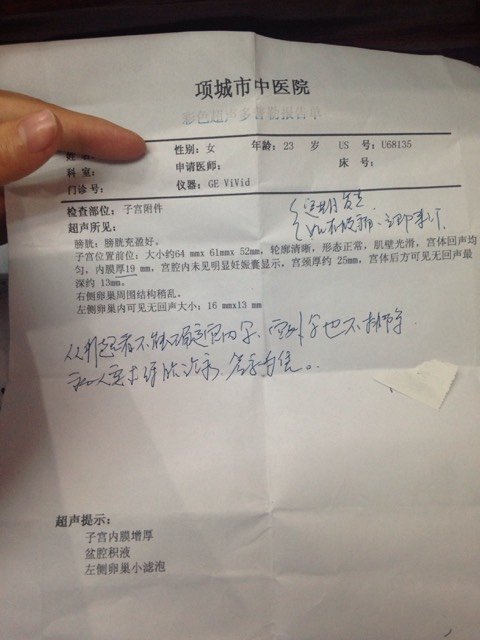 项城市中医院
彩色超声多普勒报告单
姓名： 性别：女 年龄：23 岁 US 号：U68135
科室： 申请医师： 床 号：
门诊号： 仪器：GE ViVid
检查部位：子宫附件
超声所见：
膀胱：膀胱充盈好。
子宫位置前位：大小约64 mmx 61mmx 52mm，轮廓清晰，形态正常，肌壁光滑，宫体回声均
匀，内膜厚19 mm，宫腔内未见明显妊娠囊显示，宫颈厚约 25mm，宫体后方可见无回声最
深约 13mm。
右侧卵巢周围结构稍乱。
左侧卵巢内可见无回声大小：16 mmx13 mm
定期复查
超声提示：
子宫内膜增厚
盆腔积液
左侧卵巢小滤泡